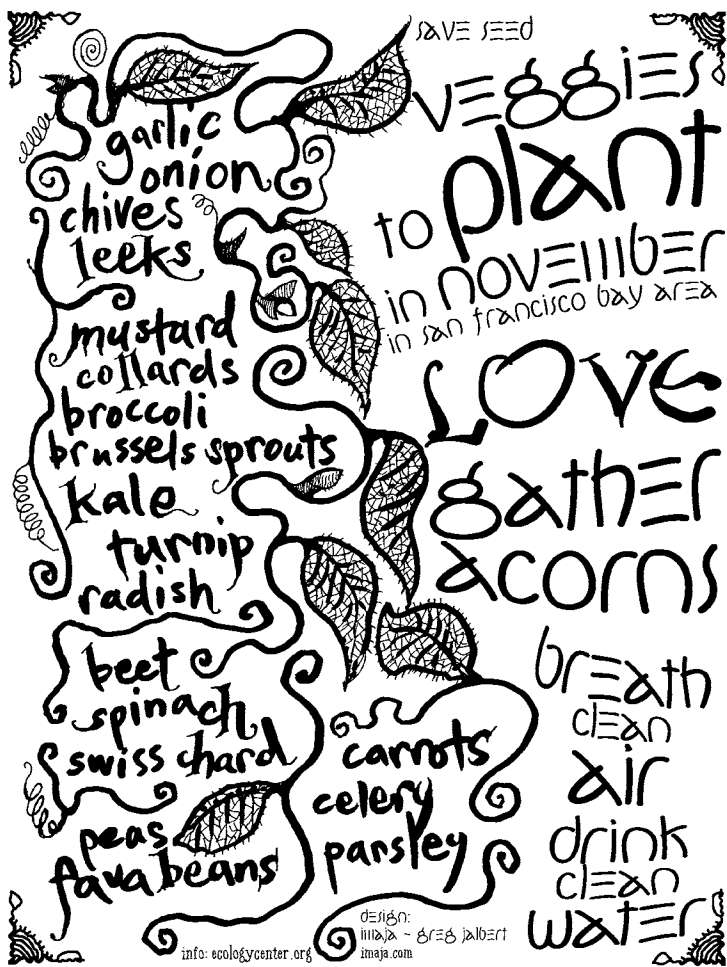 save seed
veggies
to plant
in november
in san francisco bay area
LOVE
gather
acorns
breath
clean
air
drink
clean
water
garlic
onion
chives
leeks
mustard
collards
broccoli
brussels sprouts
kale
turnip
radish
beet
spinach
swiss chard
peas
fava beans
carrots
celery
parsley
design:
imaja - greg jalbert
imaja.com
info: ecologycenter.org